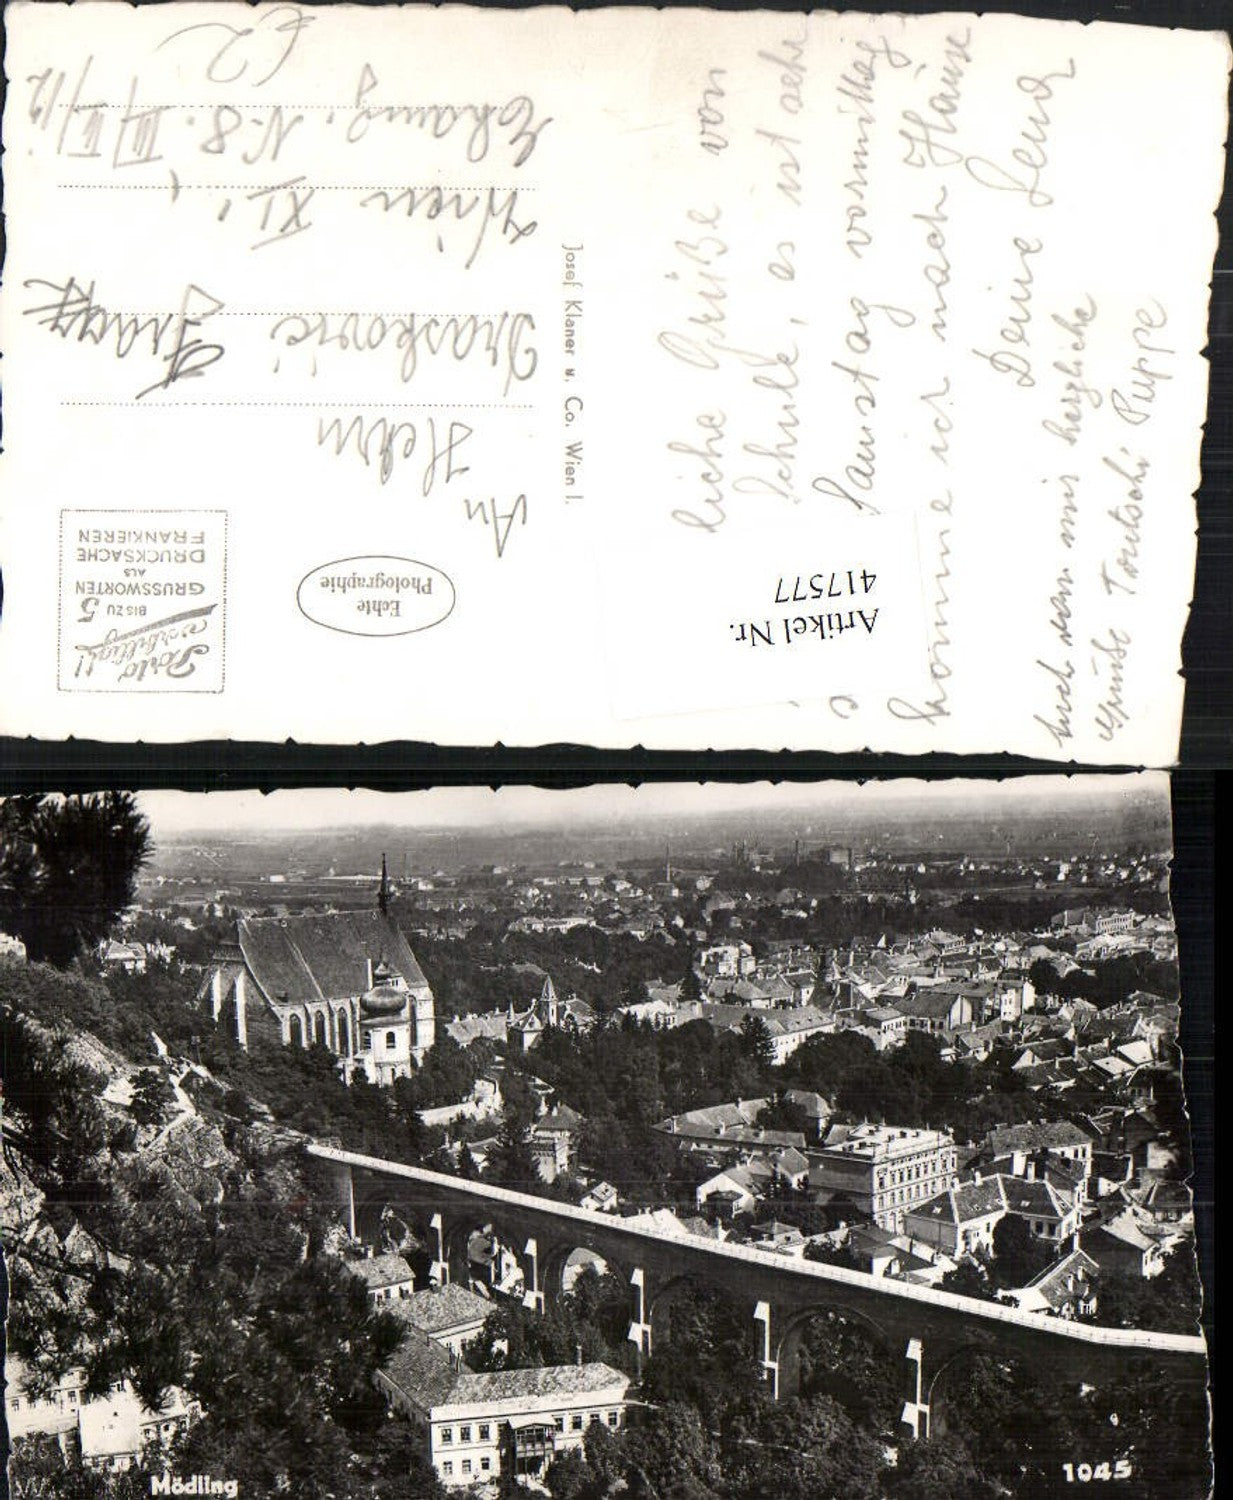 liche Grüße von
Schule, es ist sehr
Samstag vormittag
komme ich nach Hause
Deine
Auch von mir herzliche
Grüße Trutschi Puppe
Artikel Nr.
417577
Josef Klaner u. Co. Wien I.
Echte
Photographie
Porto
verbilligt!
BIS ZU 5
GRUSSWORTEN
ALS
DRUCKSACHE
FRANKIEREN
An
Herrn
Draskovic Franz
Wien XI.,
N-8. III/
62
Mödling
1045